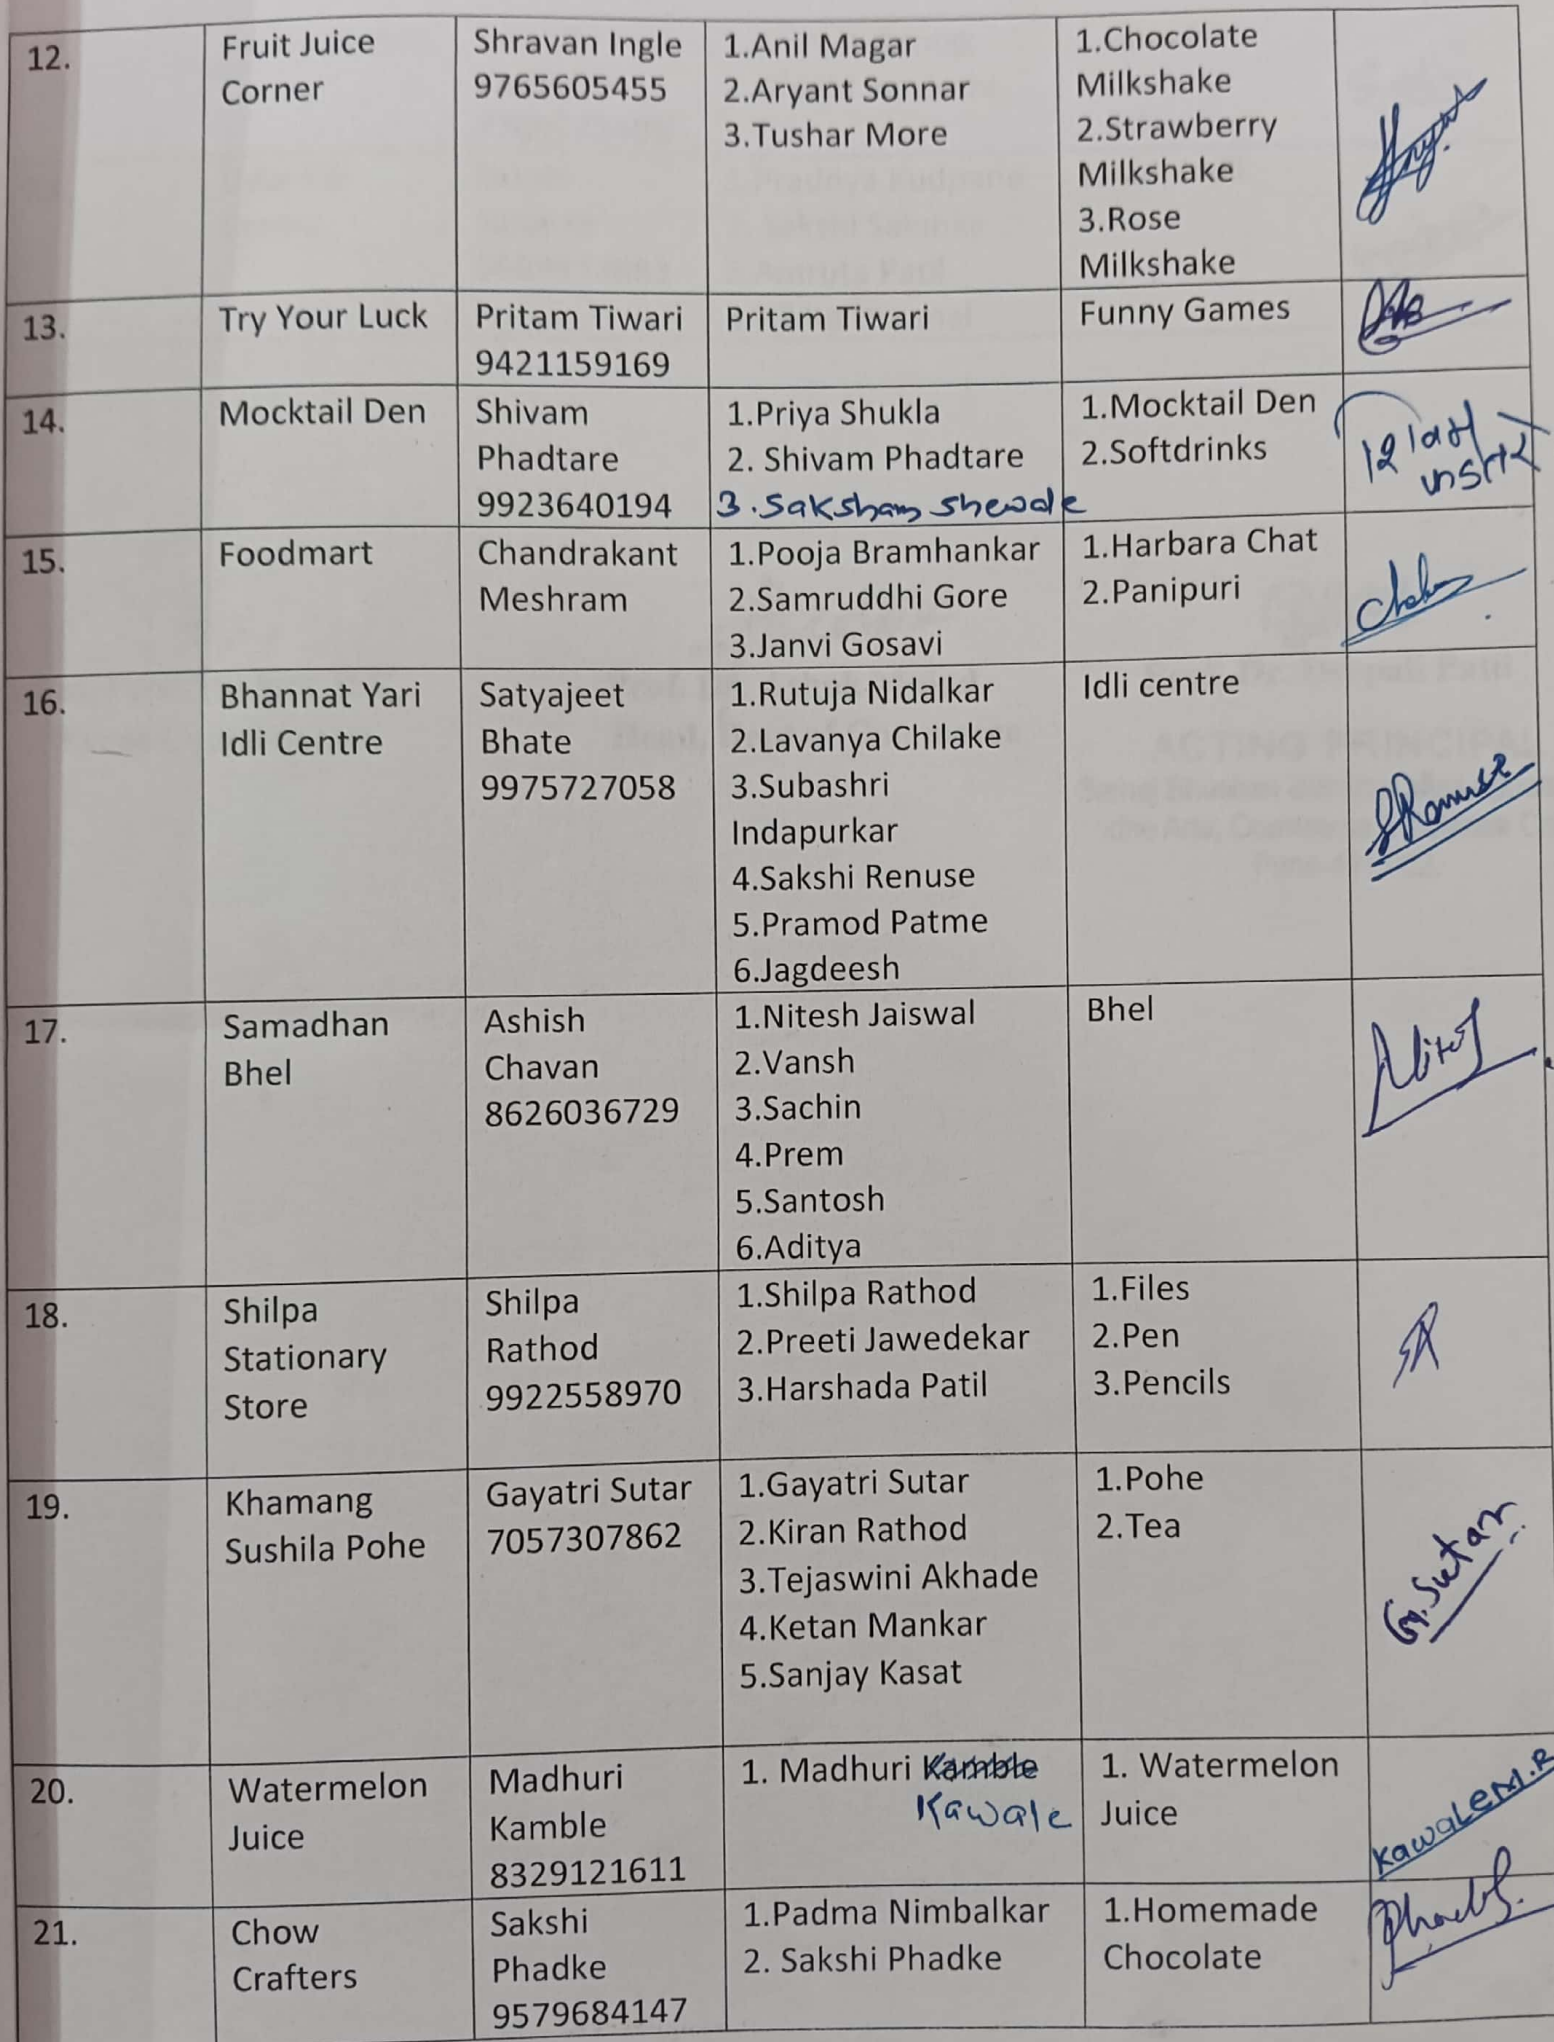 12.
Fruit Juice
Corner
Shravan Ingle
9765605455
1.Anil Magar
2.Aryant Sonnar
3.Tushar More
1.Chocolate
Milkshake
2.Strawberry
Milkshake
3.Rose
Milkshake
13.
Try Your Luck
Pritam Tiwari
9421159169
Pritam Tiwari
Funny Games
14.
Mocktail Den
Shivam
Phadtare
9923640194
1.Priya Shukla
2. Shivam Phadtare
3.Saksham Shewale
1.Mocktail Den
2.Softdrinks
15.
Foodmart
Chandrakant
Meshram
1.Pooja Bramhankar
2.Samruddhi Gore
3.Janvi Gosavi
1.Harbara Chat
2.Panipuri
16.
Bhannat Yari
Idli Centre
Satyajeet
Bhate
9975727058
1.Rutuja Nidalkar
2.Lavanya Chilake
3.Subashri
Indapurkar
4.Sakshi Renuse
5.Pramod Patme
6.Jagdeesh
Idli centre
17.
Samadhan
Bhel
Ashish
Chavan
8626036729
1.Nitesh Jaiswal
2.Vansh
3.Sachin
4.Prem
5.Santosh
6.Aditya
Bhel
18.
Shilpa
Stationary
Store
Shilpa
Rathod
9922558970
1.Shilpa Rathod
2.Preeti Jawedekar
3.Harshada Patil
1.Files
2.Pen
3.Pencils
19.
Khamang
Sushila Pohe
Gayatri Sutar
7057307862
1.Gayatri Sutar
2.Kiran Rathod
3.Tejaswini Akhade
4.Ketan Mankar
5.Sanjay Kasat
1.Pohe
2.Tea
G.Sutar
20.
Watermelon
Juice
Madhuri
Kamble
8329121611
1. Madhuri Kamble
Kawale
1. Watermelon
Juice
KawaLe M.R
21.
Chow
Crafters
Sakshi
Phadke
9579684147
1.Padma Nimbalkar
2. Sakshi Phadke
1.Homemade
Chocolate